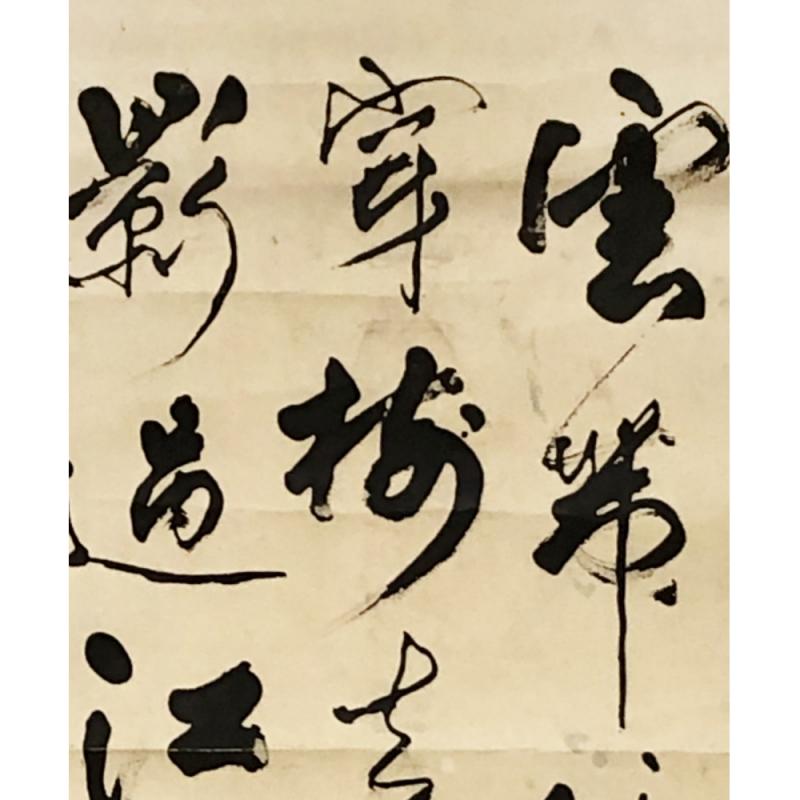 雲帶
穿樹去
影過江